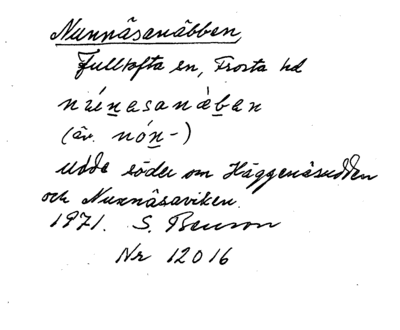 Nunnäsanäbben
Fulltofta sn, Frosta hd
núnasanàban
(äv. nón-)
Udde söder om Häggenäsudden
och Nunnäsaviken.
1971. S. Benson
Nr 12016